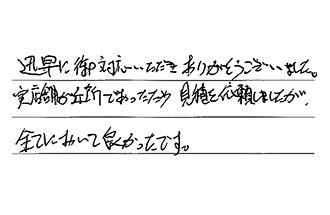 迅早に御対応いただき ありがとうございました。
実店舗が近所であったため 見積を依頼しましたが、
全てにおいて良かったです。